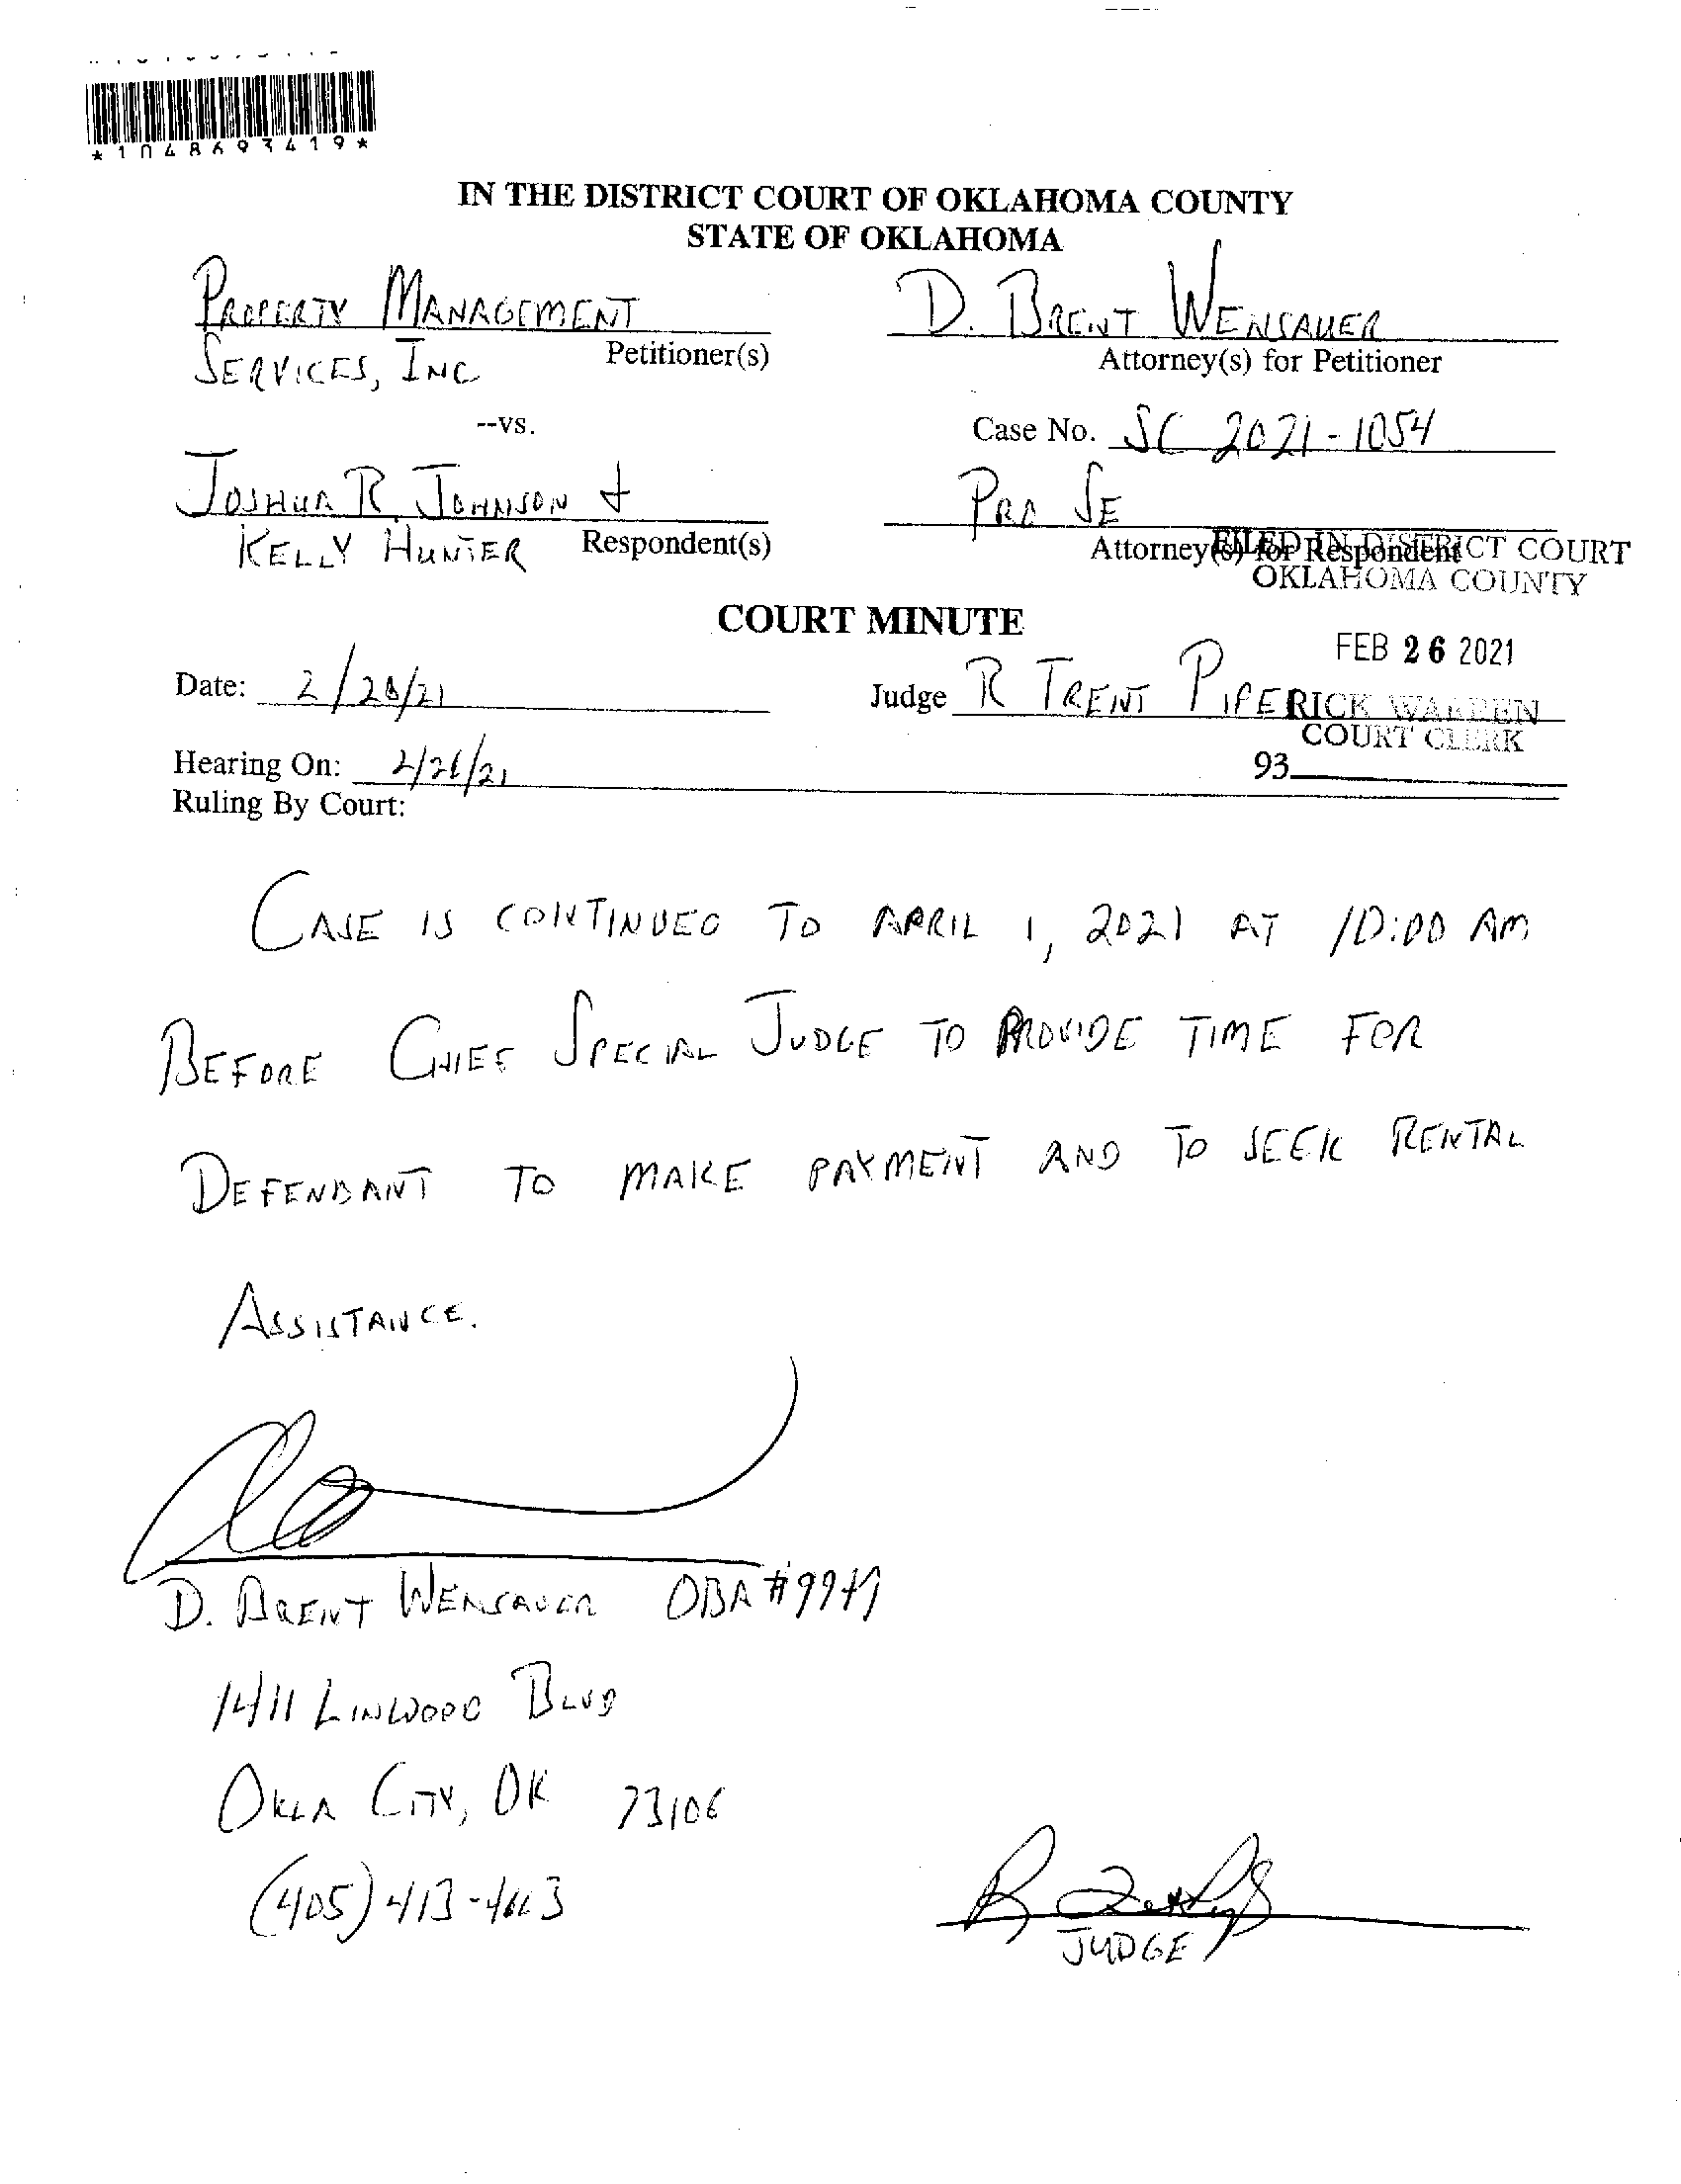 *1048693419*
IN THE DISTRICT COURT OF OKLAHOMA COUNTY
STATE OF OKLAHOMA
PROPERTY MANAGEMENT
SERVICES, INC
Petitioner(s)
D. BRENT WENSAUER
Attorney(s) for Petitioner
--vs.
Case No. SC 2021-1054
JOSHUA R. JOHNSON &
KELLY HUNTER
Respondent(s)
PRO SE
Attorney(s) for Respondent
FILED IN DISTRICT COURT
OKLAHOMA COUNTY
COURT MINUTE
FEB 26 2021
Date: 2/26/21
Judge R TRENT PIPER
RICK WARREN
COURT CLERK
Hearing On: 2/26/21
93
Ruling By Court:
CASE IS CONTINUED TO APRIL 1, 2021 AT 10:00 AM
BEFORE CHIEF SPECIAL JUDGE TO PROVIDE TIME FOR
DEFENDANT TO MAKE PAYMENT AND TO SEEK RENTAL
ASSISTANCE.
D. BRENT WENSAUER OBA #
1411 LINWOOD BLVD
OKLA CITY, OK 73106
(405) 413-
JUDGE